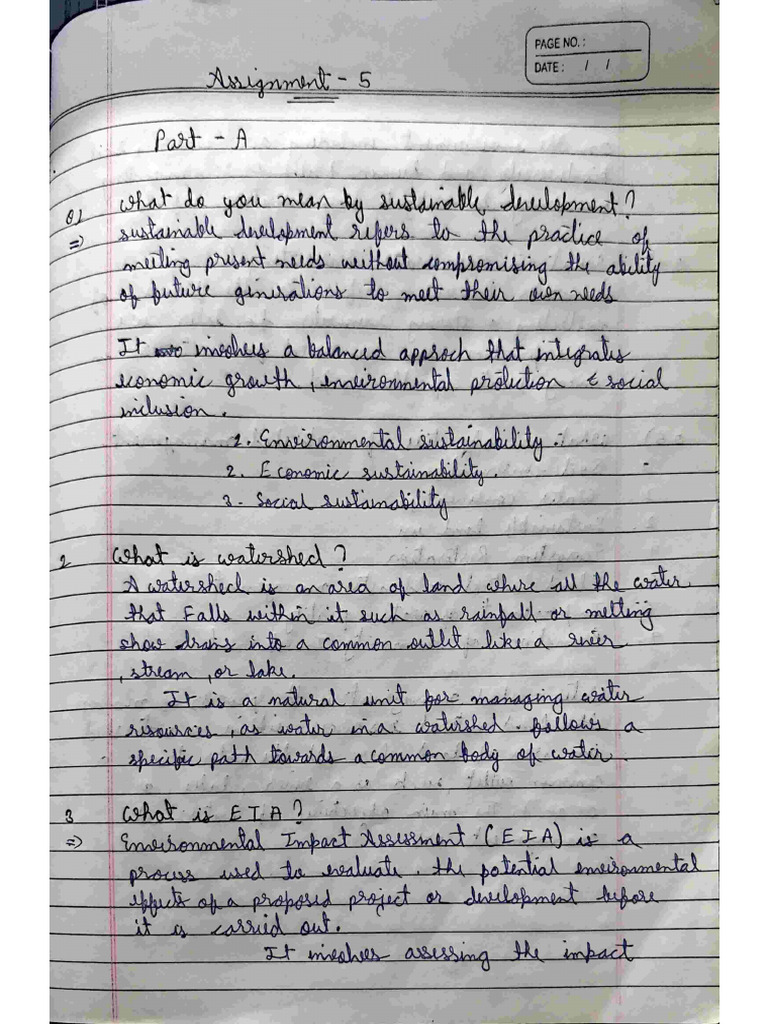 PAGE NO. :
DATE : / /
Assignment - 5
Part - A
Q1 What do you mean by sustainable development?
=> sustainable development refers to the practice of
meeting present needs without compromising the ability
of future generations to meet their own needs
It involves a balanced approch that integrates
economic growth, environmental protection & social
inclusion.
1. Environmental sustainability.
2. Economic sustainability.
3. Social sustainability
2 What is watershed?
A watershed is an area of land where all the water
that Falls within it such as rainfall or melting
show drains into a common outlet like a river
, stream, or lake.
It is a natural unit for managing water
resources, as water in a watershed. follows a
specific path towards a common body of water.
3 What is EIA?
=> Environmental Impact Assessment (EIA) is a
process used to evaluate. the potential environmental
effects of a proposed project or development before
it is carried out.
It involves assessing the impact